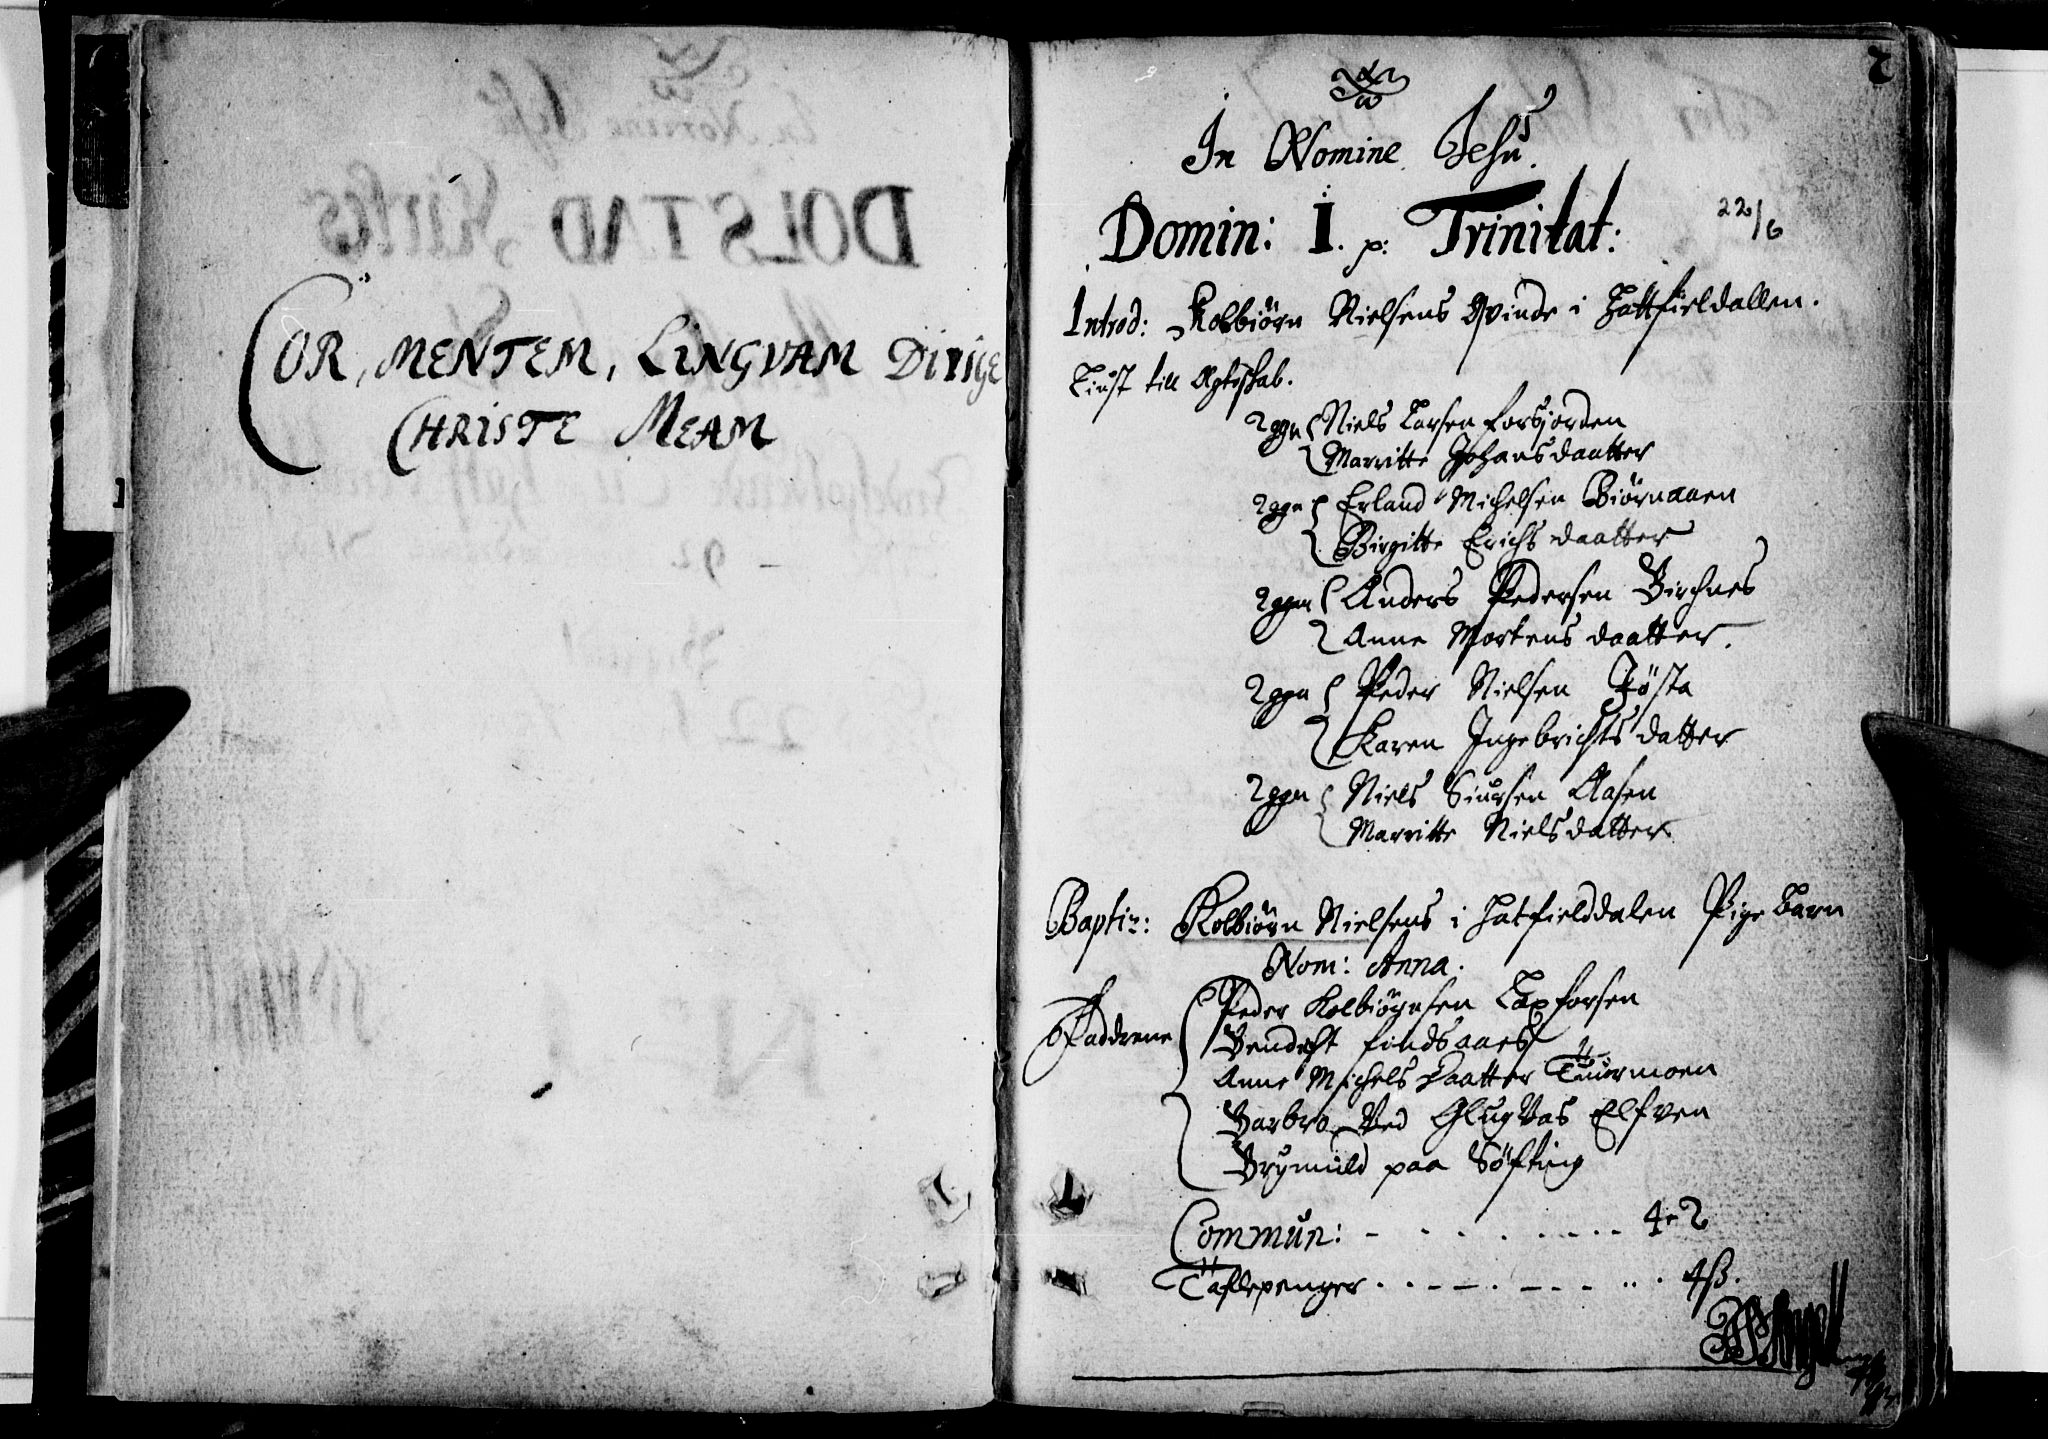 COR, MENTEM, LINGVAM Dirige
CHRISTE MEAM
2
In Nomine Jesu.
Domin: I. p: Trinitat:
22/6
Introd: Kolbiørn Nielsens Qvinde i Hattfieldallen.
till Ægteskab.
2 ggn Niels Larsen forsjorden
Marritte Johansdaatter
2 ggn Erland Michelsen Biørnaaen
Birgitte Erichsdaatter
2 ggn Anders Pedersen Birchnes
Anne Mortensdaatter.
2 ggn Peder Nielsen Jösta
Karen Ingebrichtsdatter
2 ggn Niels Siursen Aasen
Marritte Nielsdatter
Baptiz: Kolbiørn Nielsens i Hatfielddalen Pige Barn
Nom: Anna.
Faddrene
Peder Kolbiørnsen Laxforsen
Bendicht findsaaes
Anne Michelsdaatter Tuurmoen
Barbro Ved GlugVas Elfven
Brynnild paa Söfting
Commun: 42
Taflepenger 4 ß.